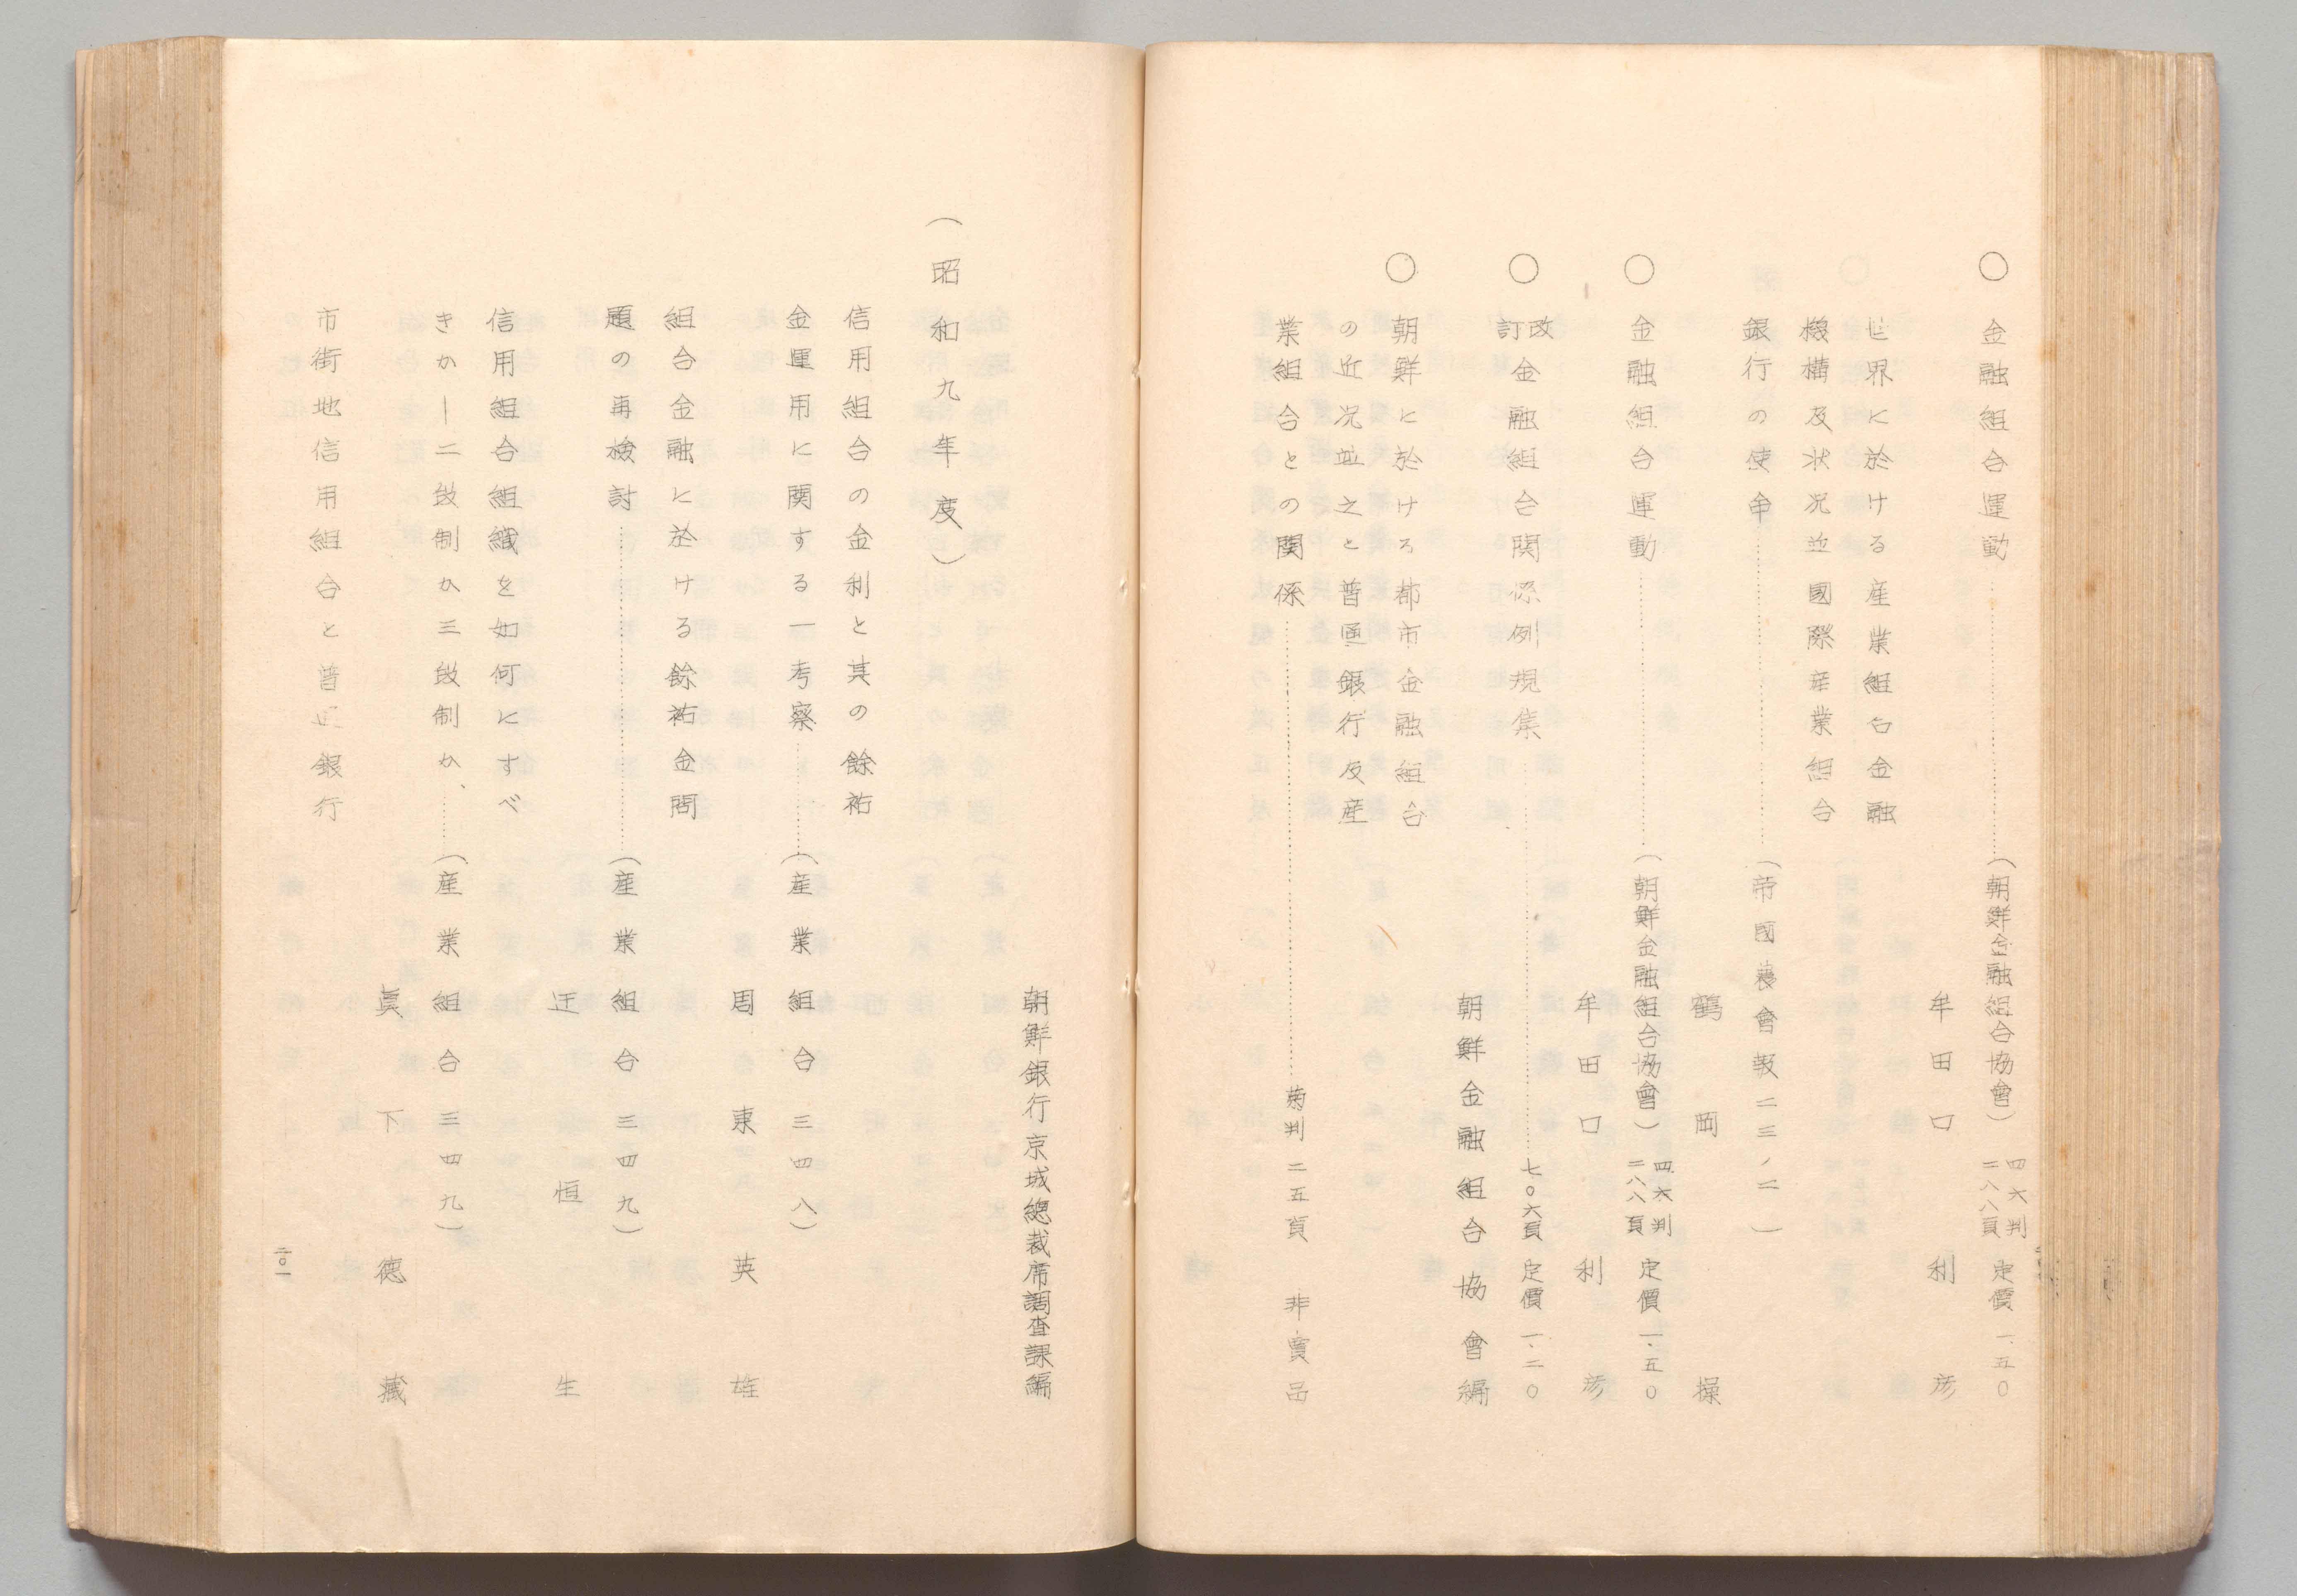 ○ 金融組合運動……………(朝鮮金融組合協會) 四六判二八八頁 定價 一、五〇
牟田口利彦
世界に於ける産業組合金融
機構及状況並國際産業組合
銀行の使命……………(帝國農會報二三ノ二)
鶴岡操
○ 金融組合運動……………(朝鮮金融組合協會) 四六判二八八頁 定價 一、五〇
牟田口利彦
○ 改訂金融組合関係例規集……………七〇六頁 定價 一、二〇
朝鮮金融組合協會編
○ 朝鮮に於ける都市金融組合
の近況並之と普通銀行及産
業組合との関係……………菊判 二五頁 非賣品
朝鮮銀行京城總裁席調査課編
(昭和九年度)
信用組合の金利と其の餘裕
金運用に関する一考察……………(産業組合三四八)
周東英雄
組合金融に於ける餘祐金問
題の再検討……………(産業組合三四九)
正恒生
信用組合組織を如何にすべ
きか―二級制か三級制か、……(産業組合三四九)
眞下德藏
市街地信用組合と普通銀行
二〇一